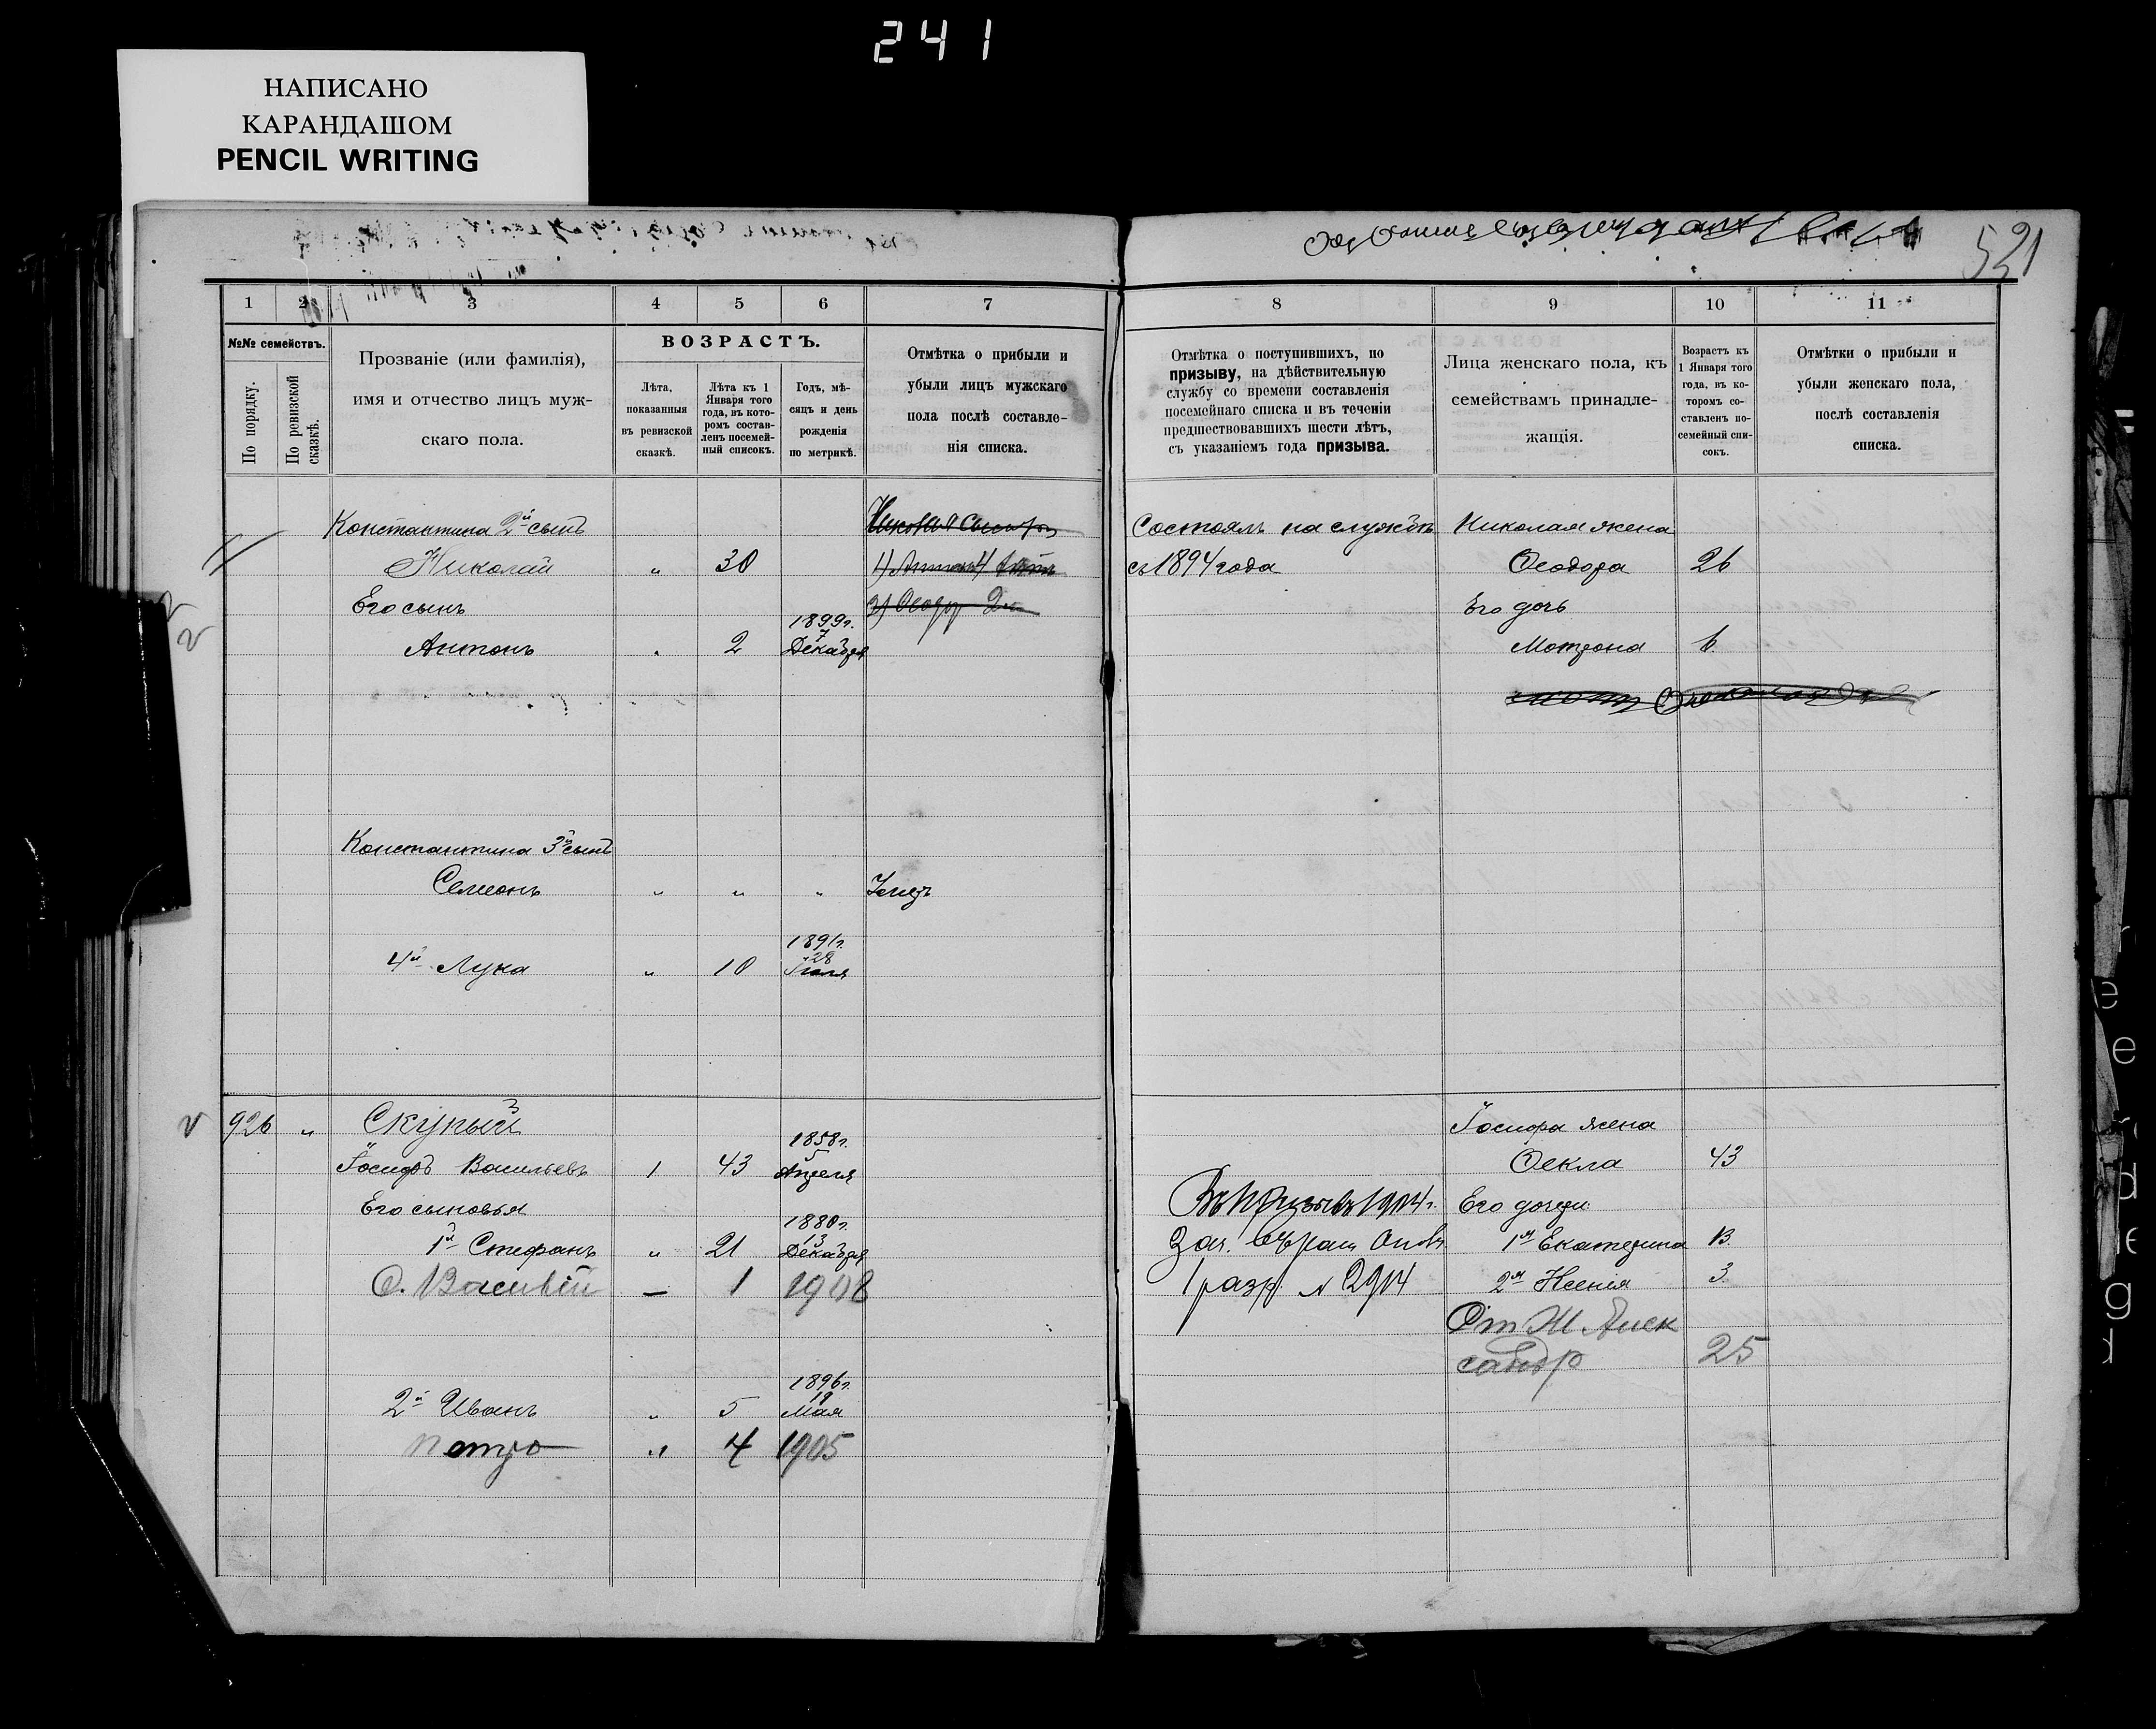 241
НАПИСАНО
КАРАНДАШОМ
PENCIL WRITING
521
1 2 3 4 5 6 7 8 9 10 11
№№ семействъ.
По порядку.
По ревизской сказкѣ.
Прозваніе (или фамилія),
имя и отчество лицъ муж-
скаго пола.
ВОЗРАСТЪ.
Лѣта,
показанныя
въ ревизской
сказкѣ.
Лѣта къ 1
Января того
года, въ кото-
ромъ состав-
ленъ посемей-
ный списокъ.
Годъ, мѣ-
сяцъ и день
рожденія
по метрикѣ.
Отмѣтка о прибыли и
убыли лицъ мужскаго
пола послѣ составле-
нія списка.
Отмѣтка о поступившихъ, по
призыву, на дѣйствительную
службу со времени составленія
посемейнаго списка и въ теченіи
предшествовавшихъ шести лѣтъ,
съ указаніемъ года призыва.
Лица женскаго пола, къ
семействамъ принадле-
жащія.
Возрастъ къ
1 Января того
года, въ ко-
торомъ со-
ставленъ по-
семейный спи-
сокъ.
Отмѣтки о прибыли и
убыли женскаго пола,
послѣ составленія
списка.
Константина 2й сынъ Состоялъ на службѣ Николая жена
Николай " 30 съ 1894 года Ѳеодора 26
Его сынъ Его дочь
1899г.
7
Антонъ " 2 Декабря Мотрона 6
Константина 3й сынъ
Семенъ " " " Умеръ
1891г.
28
4й Лука " 10 Іюля
926 " Скупый Іосифа жена
1858г.
5
Іосифъ Васильевъ 1 43 Апреля Ѳекла 43
Его сыновья Въ призывъ 1904г. Его дочери
1880г.
13
1й Стефанъ " 21 Декабря Зач. въ рат. опол. 1я Екатерина 13
С. Василій — 1 1908 1 разр. № 2914 2я Ксенія 3
Ст Ж. Алек
сандр 25
1896г.
19
2й Иванъ " 5 Мая
Петро " 4 1905